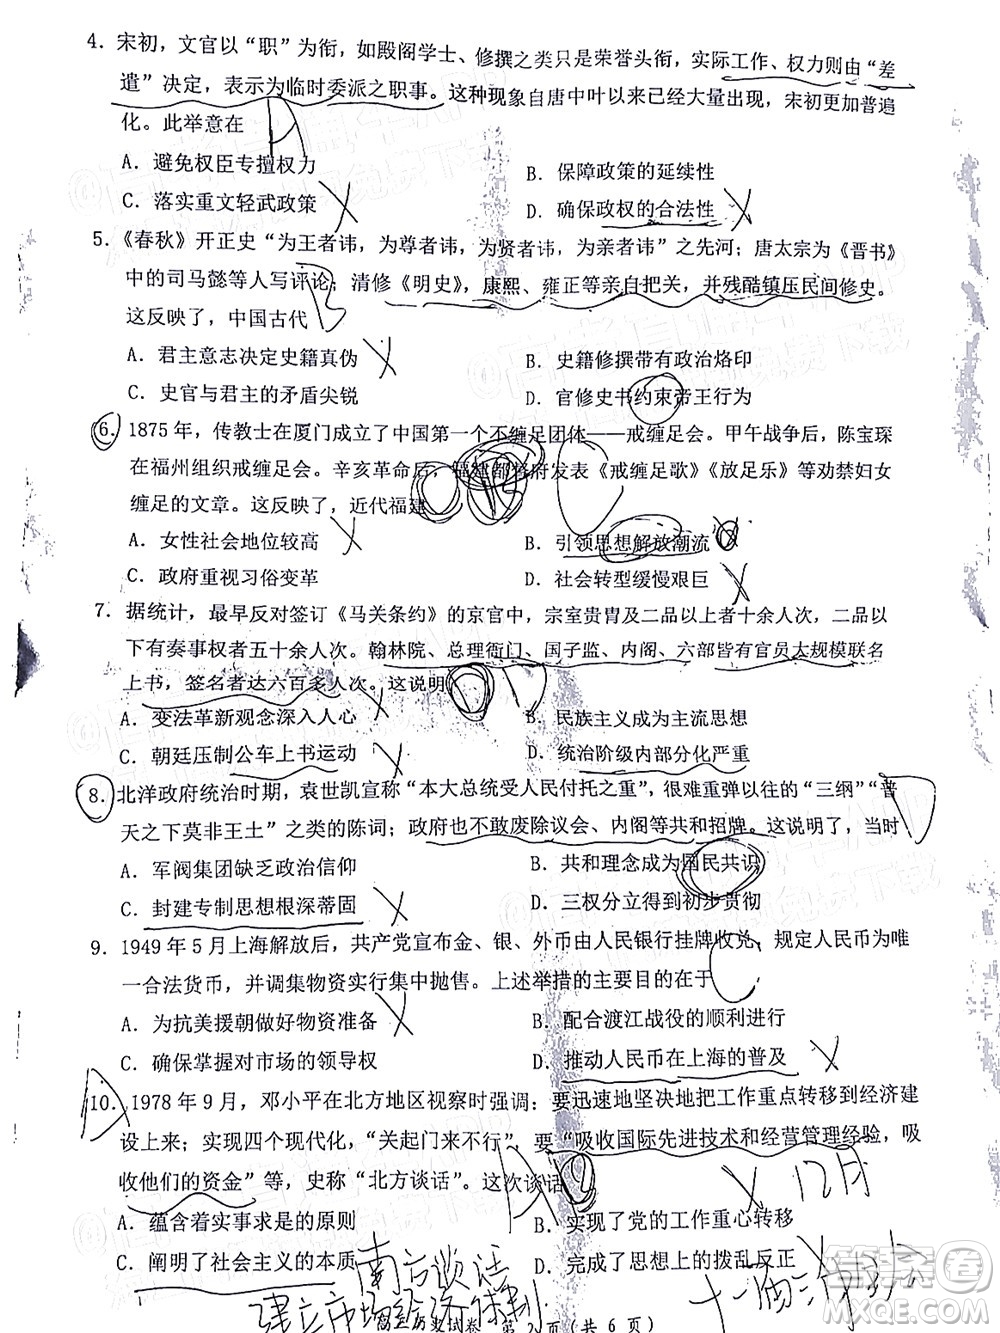 4. 宋初，文官以“职”为衔，如殿阁学士、修撰之类只是荣誉头衔，实际工作、权力则由“差
遣”决定，表示为临时委派之职事。这种现象自唐中叶以来已经大量出现，宋初更加普遍
化。此举意在
A. 避免权臣专擅权力 B. 保障政策的延续性
C. 落实重文轻武政策 D. 确保政权的合法性
5. 《春秋》开正史“为王者讳，为尊者讳，为贤者讳，为亲者讳”之先河；唐太宗为《晋书》
中的司马懿等人写评论；清修《明史》，康熙、雍正等亲自把关，并残酷镇压民间修史。
这反映了，中国古代
A. 君主意志决定史籍真伪 B. 史籍修撰带有政治烙印
C. 史官与君主的矛盾尖锐 D. 官修史书约束帝王行为
6. 1875 年，传教士在厦门成立了中国第一个不缠足团体——戒缠足会。甲午战争后，陈宝琛
在福州组织戒缠足会。辛亥革命后，福建都督府发表《戒缠足歌》《放足乐》等劝禁妇女
缠足的文章。这反映了，近代福建
A. 女性社会地位较高 B. 引领思想解放潮流
C. 政府重视习俗变革 D. 社会转型缓慢艰巨
7. 据统计，最早反对签订《马关条约》的京官中，宗室贵胄及二品以上者十余人次，二品以
下有奏事权者五十余人次。翰林院、总理衙门、国子监、内阁、六部皆有官员大规模联名
上书，签名者达六百多人次。这说明
A. 变法革新观念深入人心 B. 民族主义成为主流思想
C. 朝廷压制公车上书运动 D. 统治阶级内部分化严重
8. 北洋政府统治时期，袁世凯宣称“本大总统受人民付托之重”，很难重弹以往的“三纲”“普
天之下莫非王土”之类的陈词；政府也不敢废除议会、内阁等共和招牌。这说明了，当时
A. 军阀集团缺乏政治信仰 B. 共和理念成为国民共识
C. 封建专制思想根深蒂固 D. 三权分立得到初步贯彻
9. 1949 年 5 月上海解放后，共产党宣布金、银、外币由人民银行挂牌收兑，规定人民币为唯
一合法货币，并调集物资实行集中抛售。上述举措的主要目的在于
A. 为抗美援朝做好物资准备 B. 配合渡江战役的顺利进行
C. 确保掌握对市场的领导权 D. 推动人民币在上海的普及
10. 1978 年 9 月，邓小平在北方地区视察时强调：要迅速地坚决地把工作重点转移到经济建
设上来；实现四个现代化，“关起门来不行”，要“吸收国际先进技术和经营管理经验，吸
收他们的资金”等，史称“北方谈话”。这次谈话
12月
A. 蕴含着实事求是的原则 B. 实现了党的工作重心转移
C. 阐明了社会主义的本质 D. 完成了思想上的拨乱反正
南方谈话
建立市场经济体制
十一届三中全会
高三历史试卷 第 2 页（共 6 页）
答案圈
MXQE.COM